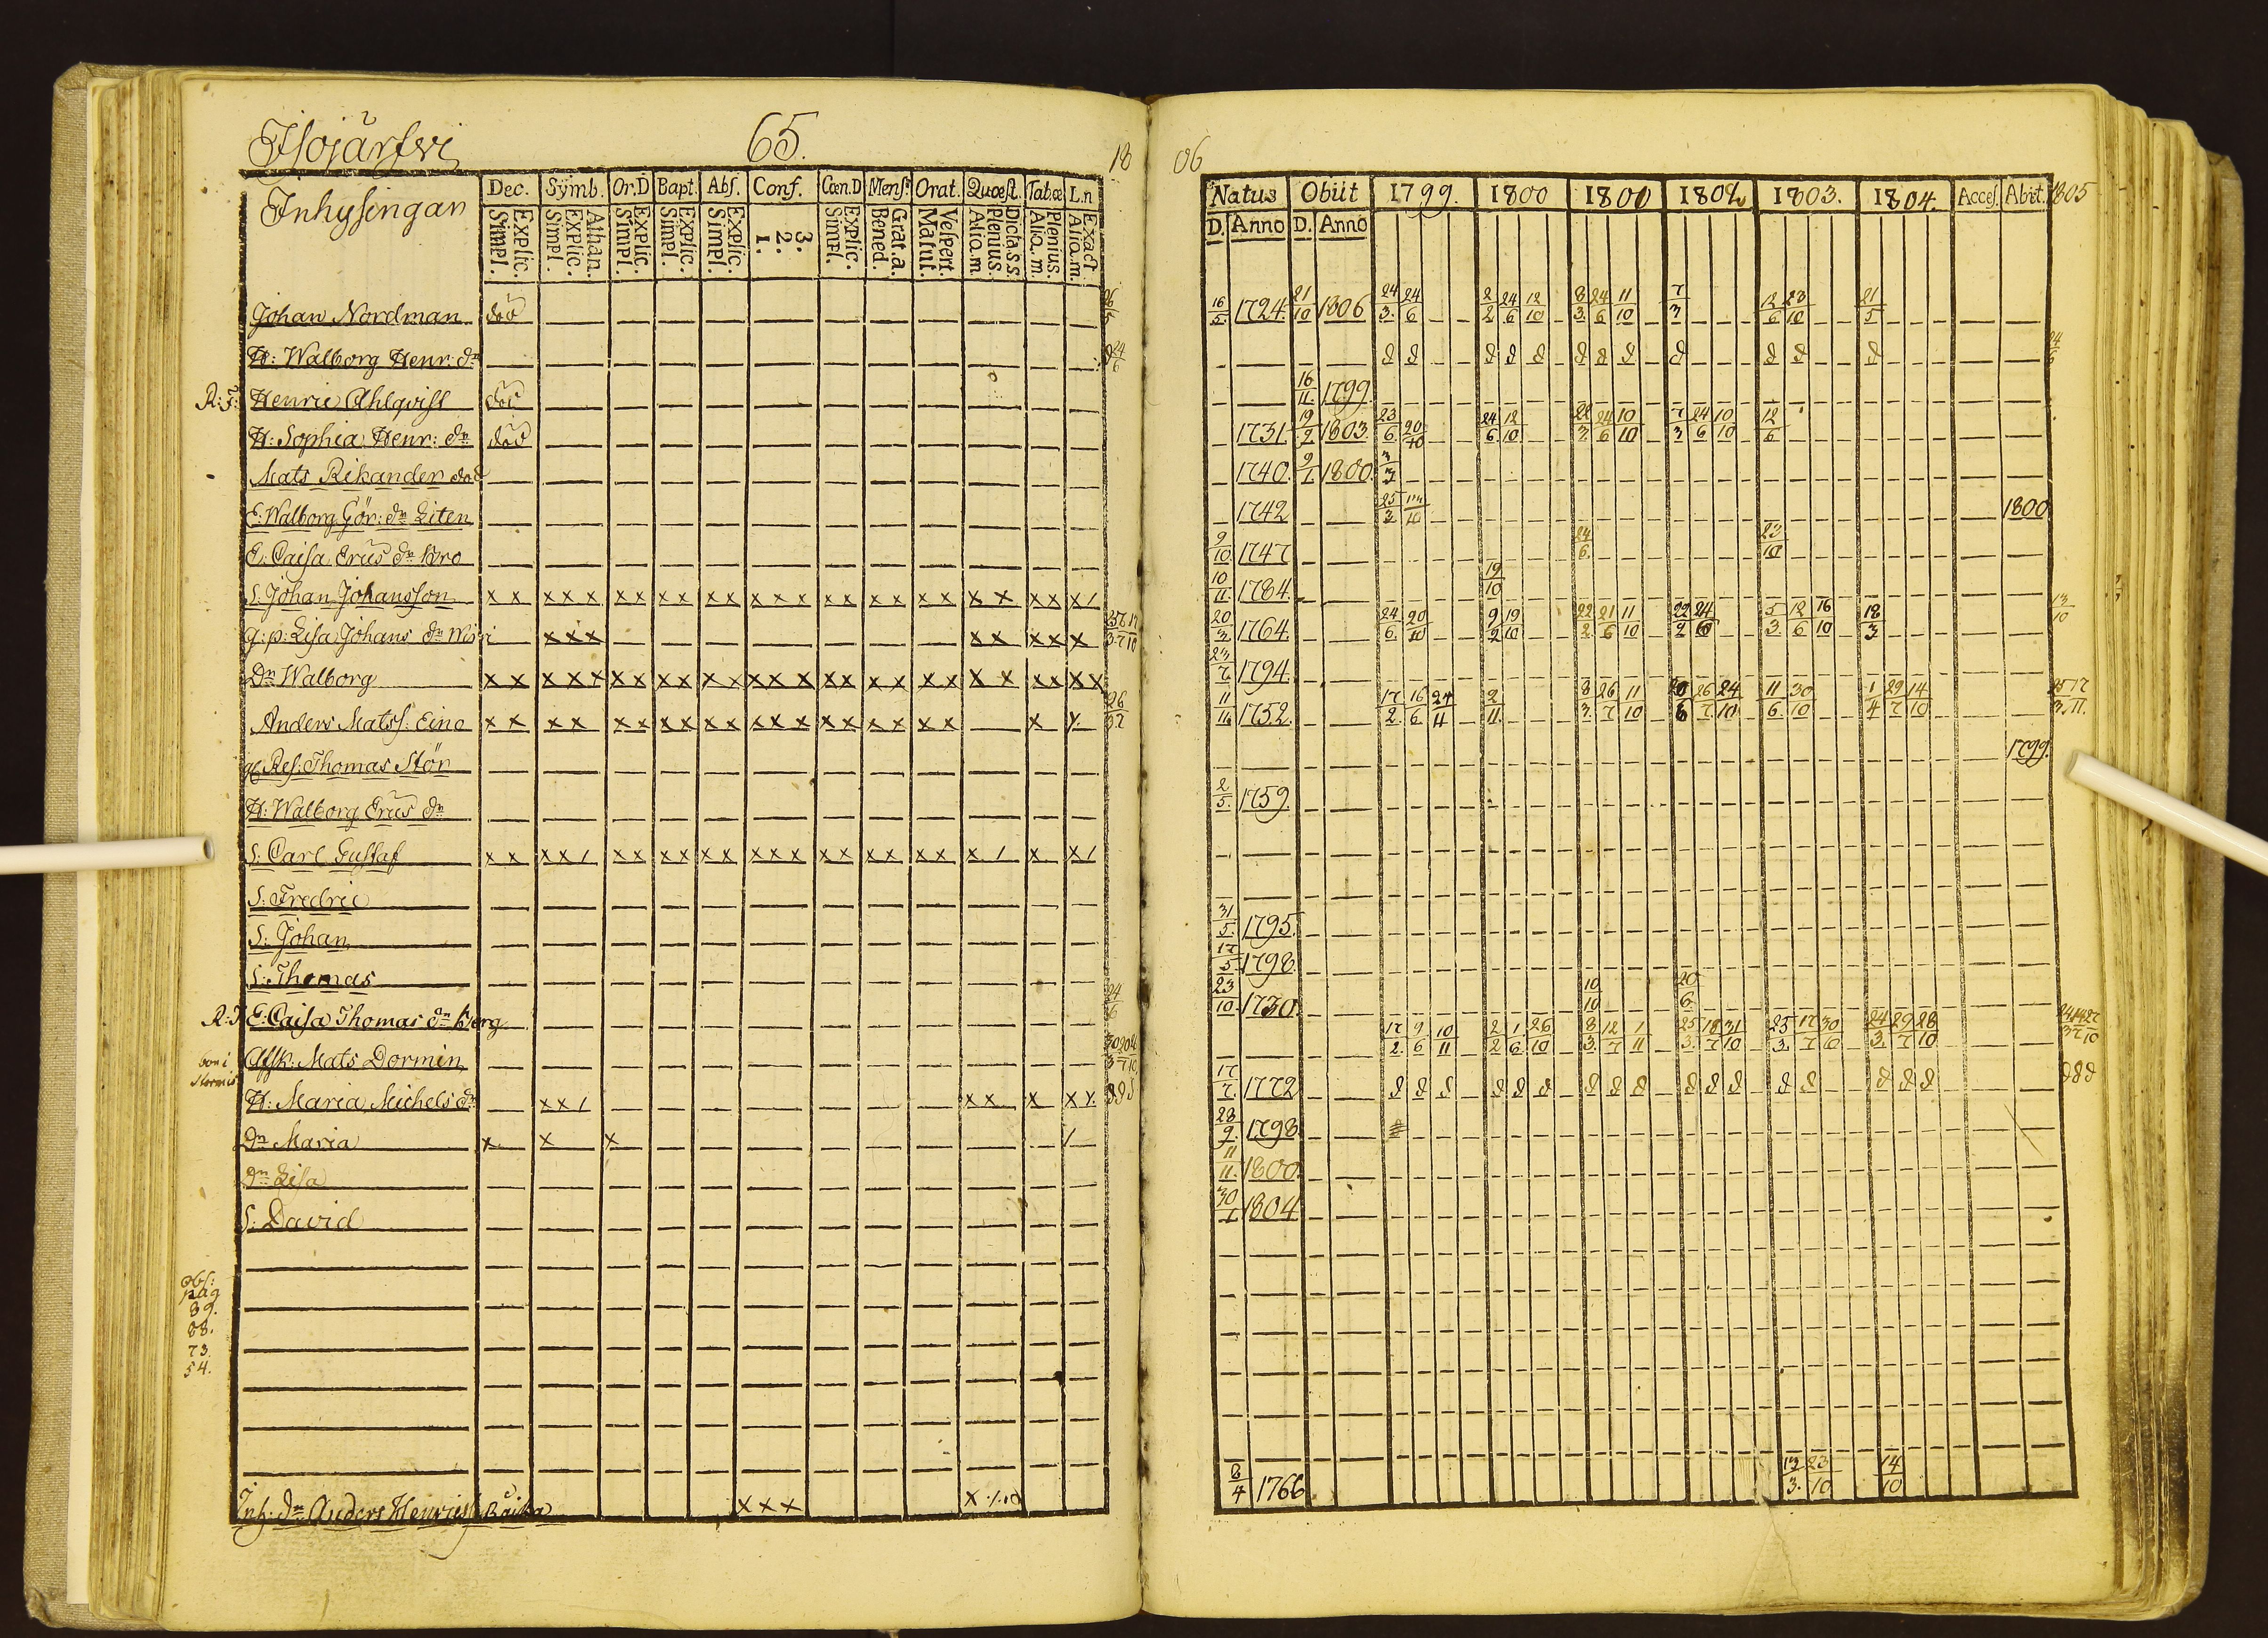 Isojärfwi
65.
18
Inhysingan
Dec. Symb. Or.D Bapt. Abs. Conf. Cœn.D Mens. Orat. Quæst. Tabœ L.n
Explic. Simpl. Athan. Explic. Simpl. Explic. Simpl. Explic. Simpl. Explic. Simpl. 3. 2. 1. Explic. Simpl. Grat.a. Bened. Vespert. Matut. Dicta s.s. Plenius. Aliq.m. Plenius. Aliq.m. Exact Aliq.m.
Johan Nordman död
H: Walborg Henr: dr
R:I: Henric Ahlqvist död
H: Sophia Henr: dr död
Mats Rikander död
E: Walborg Gör: dr Liten
E: Caisa Erics dr Bro
S: Johan Johansson x x x x x x x x x x x x x x x x x x x x x x x x x x /
g: p: Lisa Johans dr x x x x x x x x
Dr Walborg x x x x x x x x x x x x x x x x x x x x x x x x x x x
Anders Matss: Eino x x x x x x x x x x x x x x x x x x x x x
Ref. Thomas Stör
H: Walborg Erics dr
S: Carl Gustaf x x x x / x x x x x x x x x x x x x x x x x x / x x /
S: Fredric
S: Johan
S: Thomas
R:I E: Caisa Thomas dr Berg
Afsk: Mats Dormin
H: Maria Michels dr x x / x x x x x
Dr Maria x x x /
Dr Lisa
S: David
obs:
pag
89.
88.
73.
54.
Inh: dr Anders Henrics x x x x
06
Natus Obiit 1799. 1800 1800 1802 1803. 1804. Acces. Abiit. 1805
D. Anno D. Anno
16/5. 1724. 21/10 1806 24/3. 24/6 2/2 24/6 12/10 8/3. 24/6 11/10 7/3 12/6 23/10 21/5
16/11. 1799
1731. 19/7 1803. 23/6 20/10 24/6 12/10 22/3. 24/6 10/10 7/3 24/6 10/10 12/6
1740. 9/1. 1800. 3/3
1742 25/3 1800
9/10. 1747 24/6. 23/10
10/11. 1784. 19/10
20/3. 1764. 24/6. 20/10 9/2 19/10 22/2. 21/6 11/10 22/2 24/6 5/3. 12/6 16/10 18/3 13/10
23/7 1794.
11/11. 1752. 17/2. 16/6 24/11 2/11. 8/3. 26/7 11/10 20/6 26/7. 24/10 11/6. 30/10 1/4 29/7 14/10 25/3. 17/11.
1799.
2/5. 1759.
31/5. 1795.
17/5 1798
23/10. 1730. 10/10 20/6
17/2. 9/6 10/11 2/2 1/6 26/10 8/3. 12/7 1/11 25/3. 18/7 31/10 25/3. 17/7 30/10 24/3. 29/7 28/10
17/7. 1772
28/9. 1798
11/11. 1800
30/1 1804
8/4 1766 13/3. 23/10 14/10